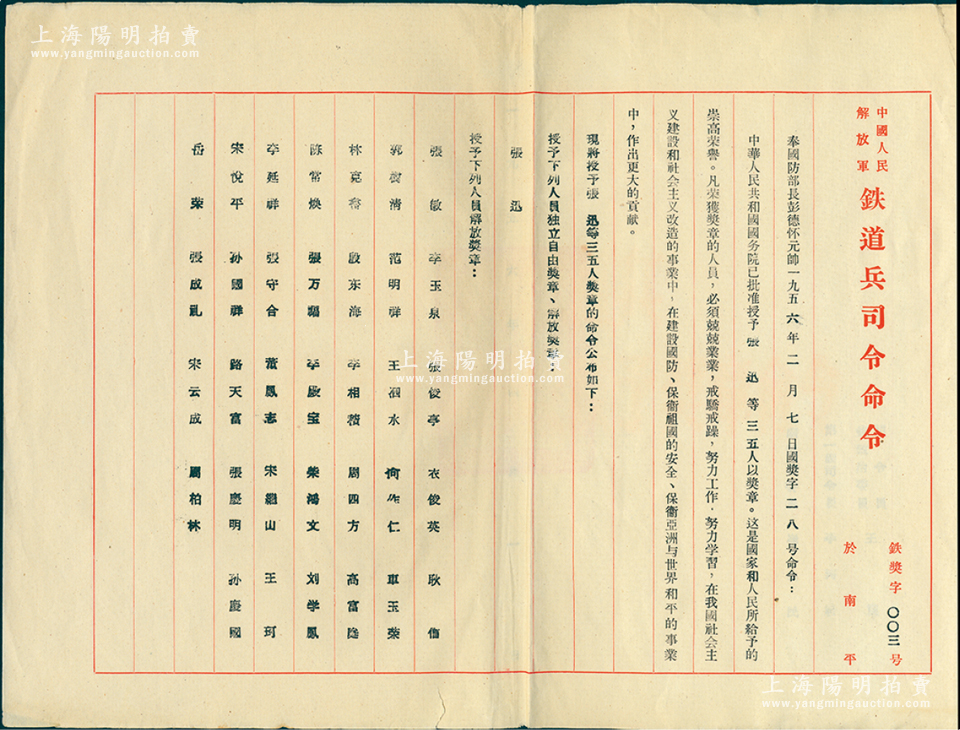 中國人民
解放軍 鉄道兵司令命令
鉄獎字〇〇三号
於南平
奉國防部長彭德怀元帥一九五六年二月七日國獎字二八号命令：
中華人民共和國國务院已批准授予張迅等三五人以獎章。这是國家和人民所給予的
崇高荣譽。凡荣獲獎章的人員，必須兢兢業業，戒驕戒躁，努力工作，努力学習，在我國社会主
义建設和社会主义改造的事業中，在建設國防、保衞祖國的安全、保衞亞洲与世界和平的事業
中，作出更大的貢献。
現將授予張迅等三五人獎章的命令公布如下：
授予下列人員独立自由獎章、解放獎章：
張迅
授予下列人員解放獎章：
張敏 李玉泉 張俊亭 衣俊英 耿
郭樹清 范明祥 王泗水 何作仁 車玉荣
林克 殷东海 李相 周四方 高富隆
陈常焕 張万 李殿宝 柴鴻文 刘学鳳
李延祥 張守合 董鳳志 宋繼山 王珂
宋悅平 孙國祥 路天富 張慶明 孙慶國
岳荣 張成礼 宋云成 周柏林
上海陽明拍賣
www.yangmingauction.com
上海陽明拍賣
www.yangmingauction.com
上海陽明拍賣
www.yangmingauction.com